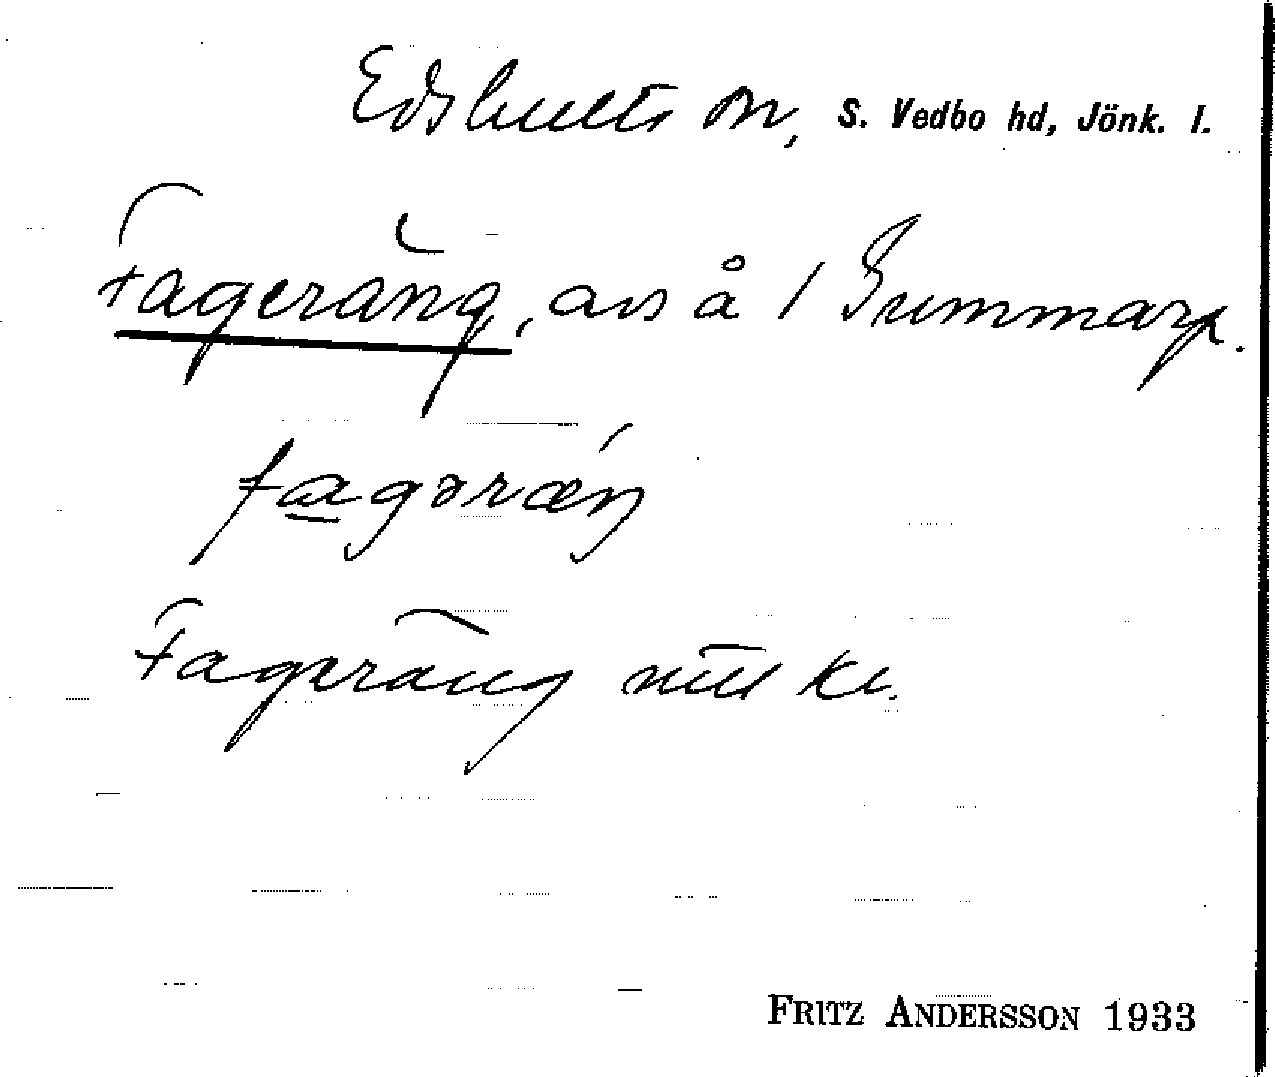 Edshults sn, S. Vedbo hd, Jönk. l.
Fageräng, avs å 1 Gummarp.
fagəræŋ
Fageräng mtl kr.
FRITZ ANDERSSON 1933